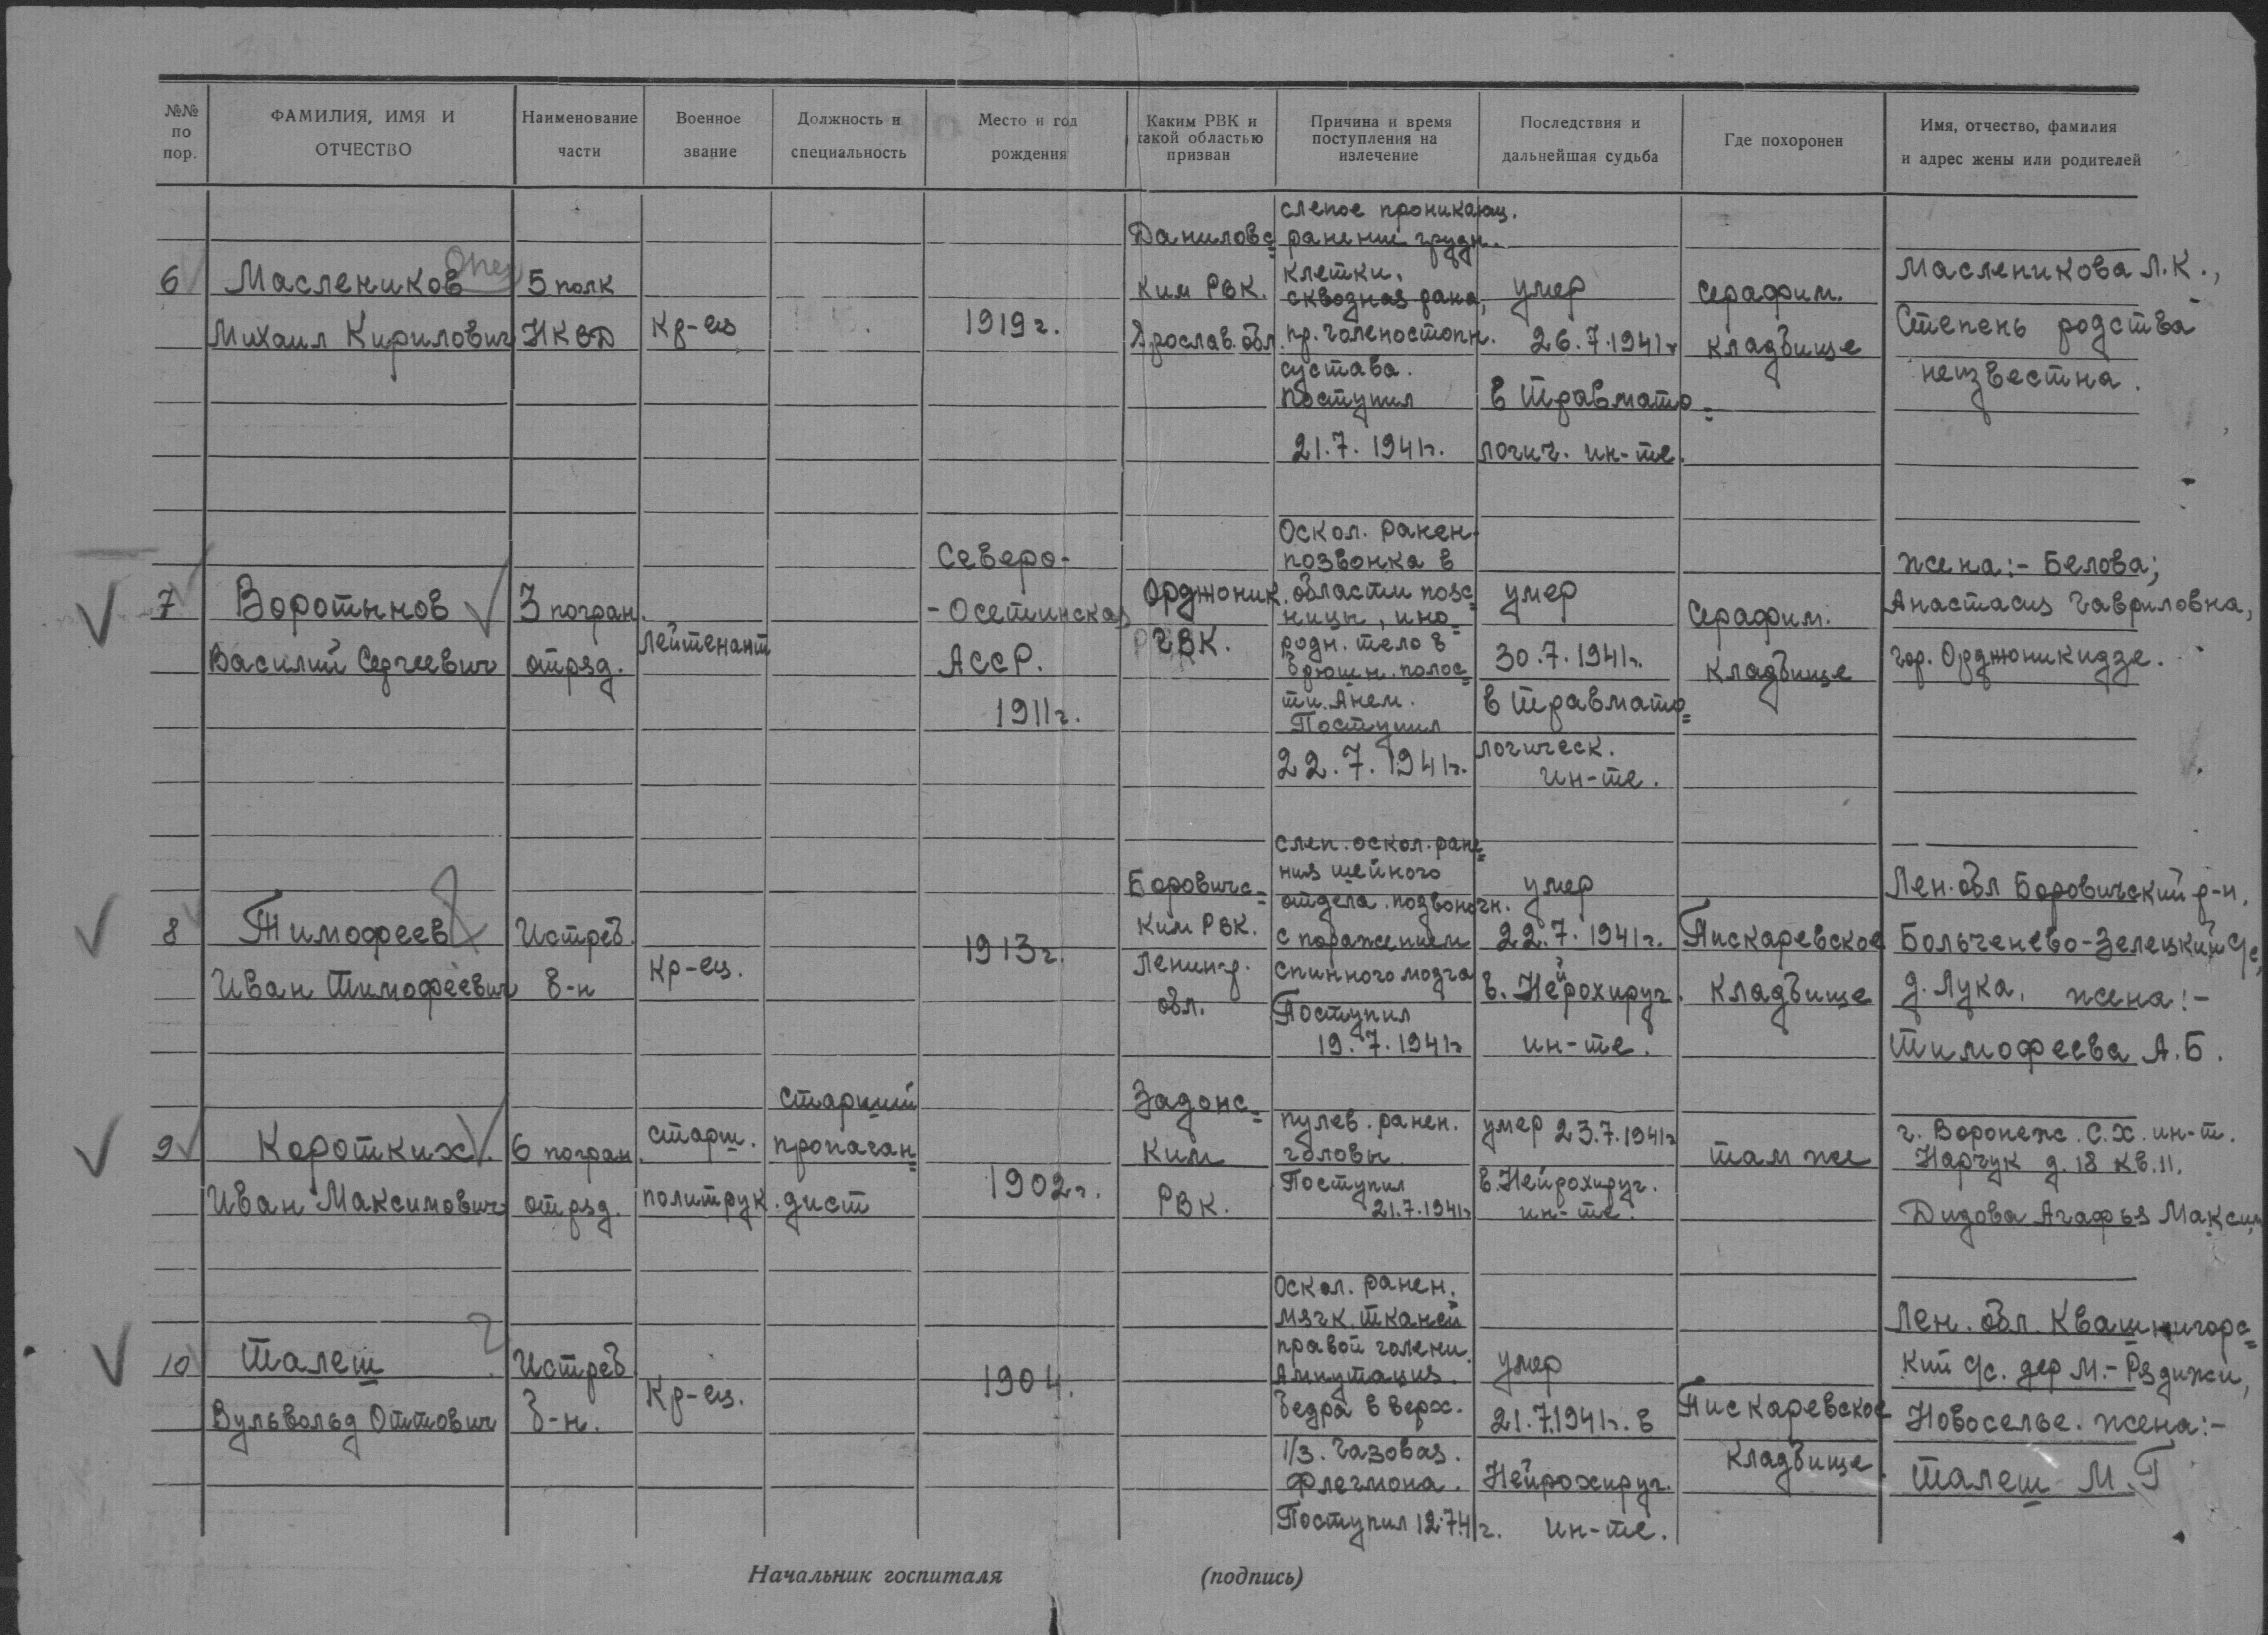 №№ по пор.
ФАМИЛИЯ, ИМЯ И ОТЧЕСТВО
Наименование части
Военное звание
Должность и специальность
Место и год рождения
Каким РВК и какой областью призван
Причина и время поступления на излечение
Последствия и дальнейшая судьба
Где похоронен
Имя, отчество, фамилия и адрес жены или родителей
6
Маслеников
Михаил Кирилович
5 полк
НКВД
Кр-ец
1919 г.
Даниловс=
ким РВК.
Ярослав. обл.
слепое проникающ.
ранение грудн.
клетки.
сквозная рана,
пр. голеностопн.
сустава.
поступил
21.7.1941г.
умер
26.7.1941г
в травмато=
логич. ин-те.
Серафим.
кладбище
Масленикова Л.К.,
Степень родства
неизвестна.
7
Воротынов
Василий Сергеевич
3 погран.
отряд.
Лейтенант
Северо-
-Осетинская
АССР.
1911г.
Орджоник.
ГВК.
Оскол. ранен.
позвонка в
области пояс=
ницы, ино=
родн. тело в
брюшн. полос=
ти. Анем.
Поступил
22.7.1941г.
умер
30.7.1941г.
в травмато=
логическ.
ин-те.
Серафим.
кладбище
жена:- Белова;
Анастасия Гавриловна,
гор. Орджоникидзе.
8
Тимофеев
Иван Тимофеевич
Истреб.
б-н
Кр-ец.
1913г.
Боровичс=
ким РВК.
Ленингр.
обл.
слеп. оскол. ране=
ния шейного
отдела. позвоночн.
с поражением
спинного мозга
Поступил
19.7.1941г
умер
22.7.1941г.
в. Нейрохирург.
ин-те.
Пискаревское
кладбище
Лен. обл Боровичский р-н,
Больченево-Зелецкий с/с,
д. Лука, жена:-
Тимофеева А.Б.
9
Коротких.
Иван Максимович
6 погран.
отряд.
старш.
политрук.
старший
пропаган=
дист
1902г.
Задонс=
ким
РВК.
пулев. ранен.
головы.
Поступил
21.7.1941г
умер 23.7.1941г
в. Нейрохирург.
ин-те.
там же
г. Воронеж. С.Х. ин-т.
д. 18 кв. 11.
Дидова Агафья Максим.
10
Талеш
Вульвольд Оттович
Истреб.
б-н.
Кр-ец.
1904.
Оскол. ранен.
мягк. тканей
правой голени.
Ампутация.
бедра в верх.
1/3. Газовая.
флегмона.
Поступил 12.7.41г.
умер
21.7.1941г. в
Нейрохирург.
ин-те.
Пискаревское
кладбище.
Лен. обл. Квашнигорс=
кий с/с. дер М.-Рядижи,
Новоселье. жена:-
Талеш М.Г
Начальник госпиталя (подпись)